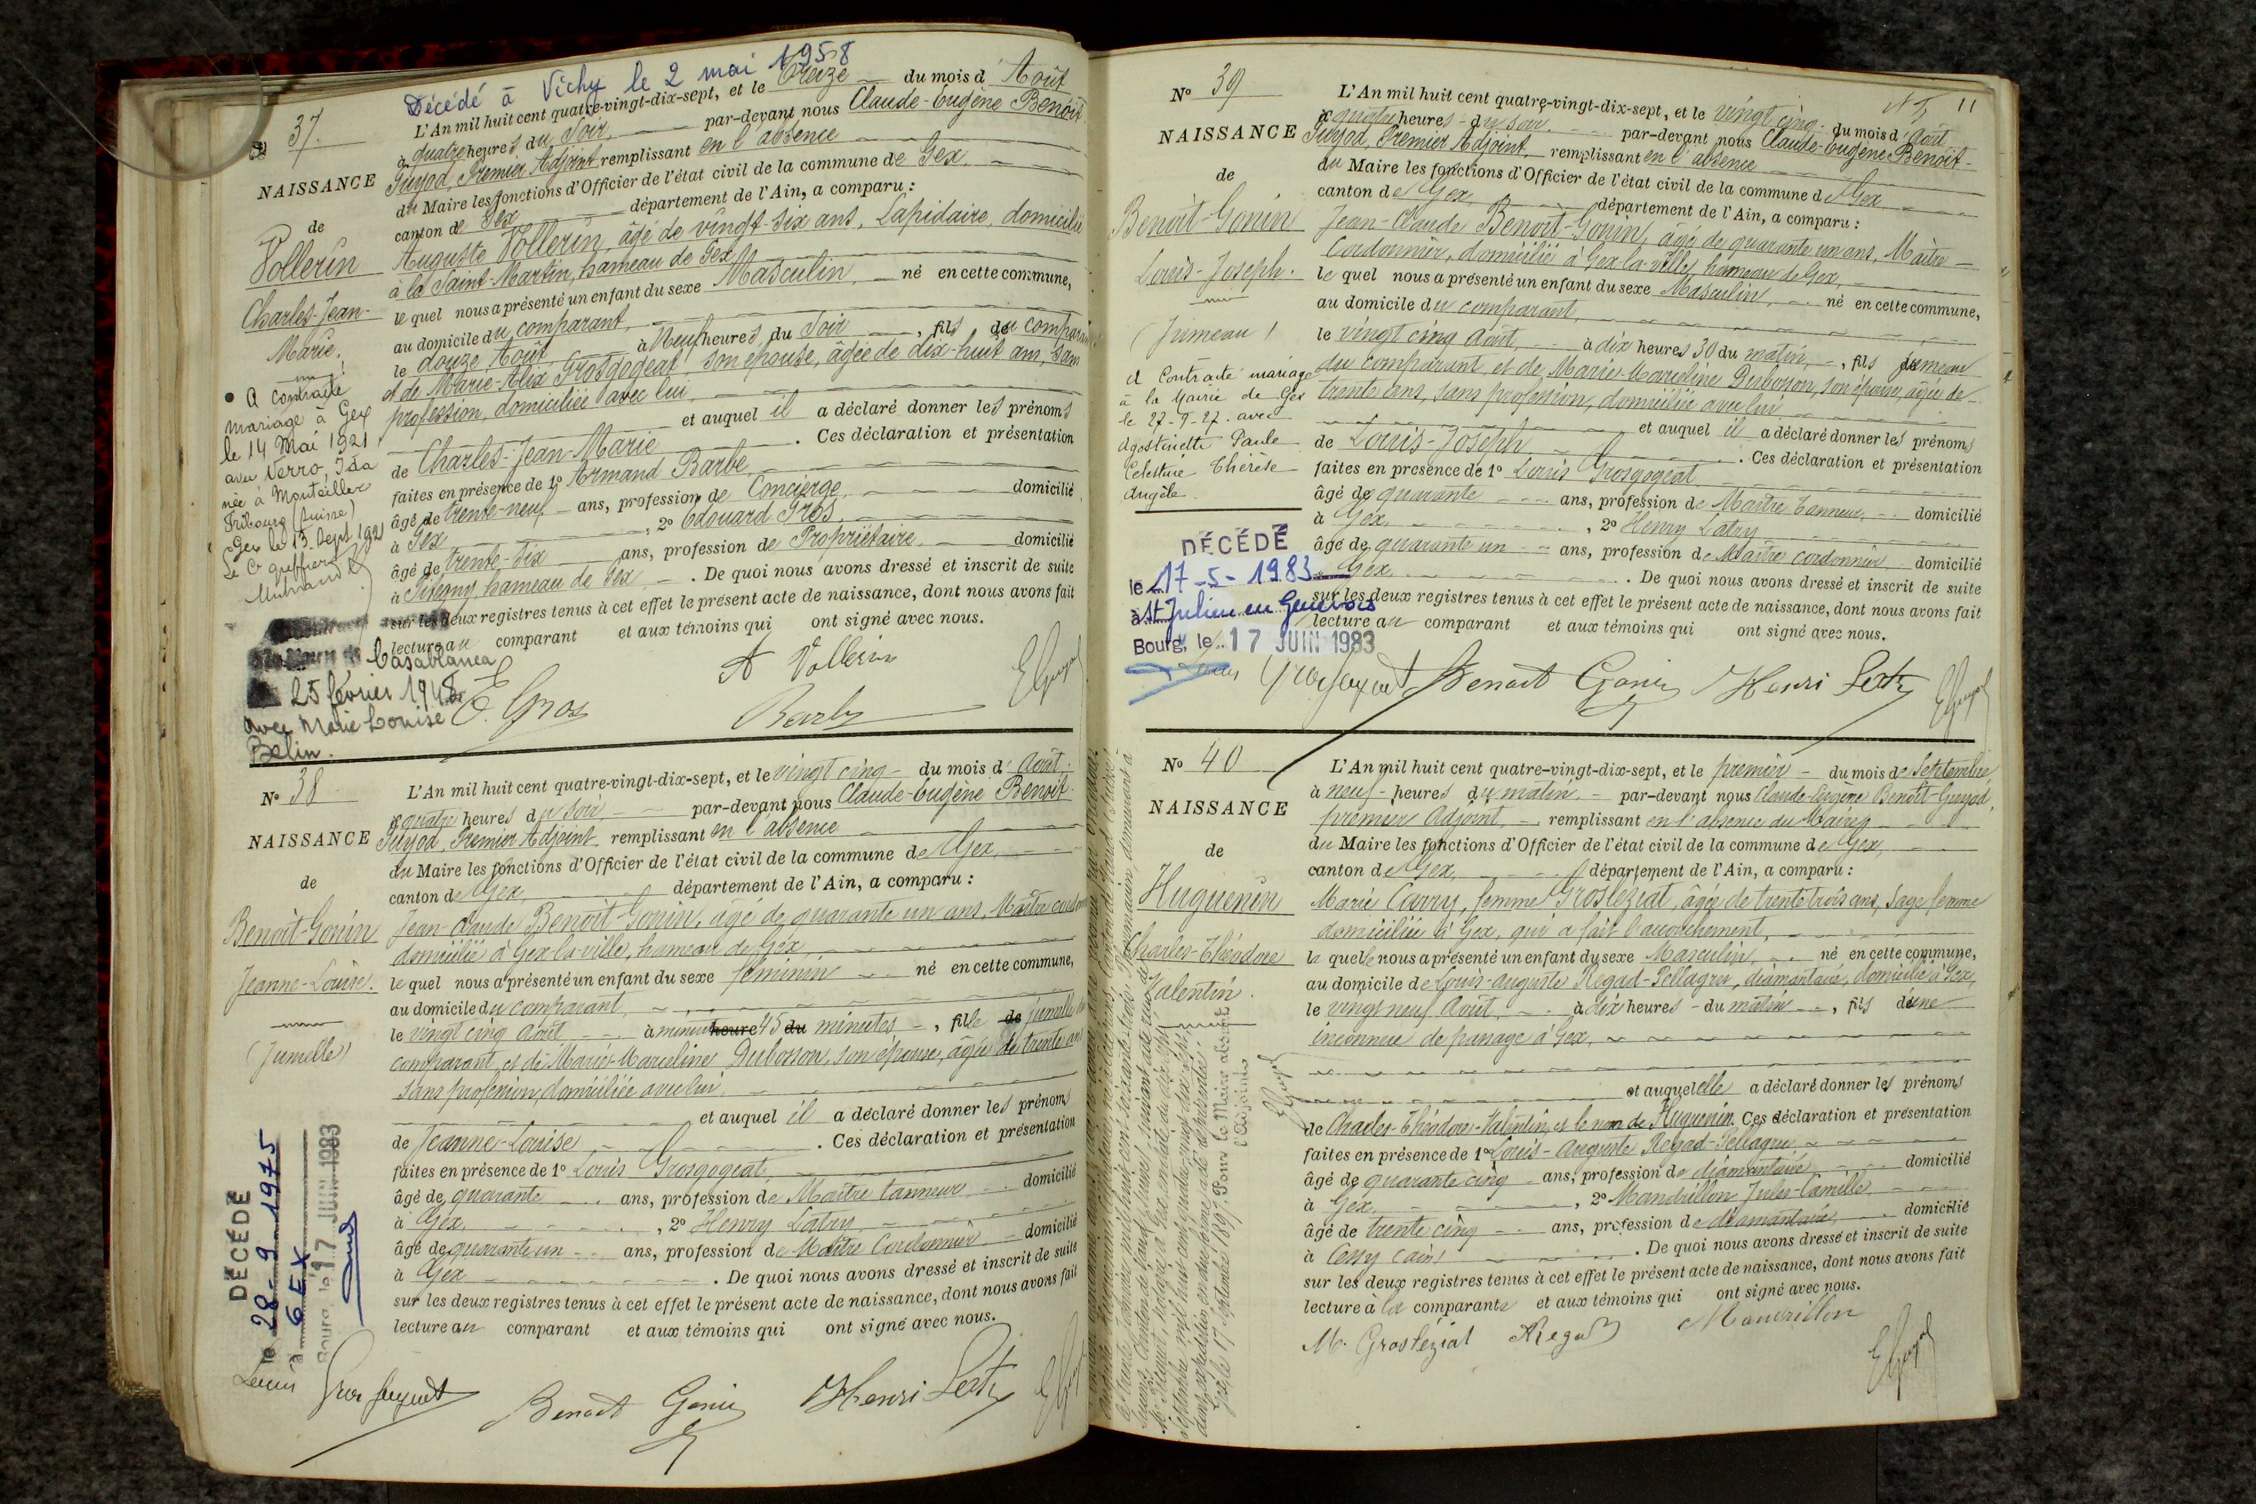 Décédé à Vichy le 2 mai 1958
37.
NAISSANCE
de
Vollerin
Charles-Jean-
Marie.
A contracté
mariage à Gex
le 14 Mai 1921
avec Verro, Ida
née à
Fribourg (Suisse)
Gex le 13 Sept 1921
Le Cr greffier
Casablanca
25 février 1948
avec Marie Louise
Belin.
L'An mil huit cent quatre-vingt-dix-sept, et le Treize du mois d'Août
à quatre heures du Soir, par-devant nous Claude-Eugène Benoit
Guyod, Premier Adjoint remplissant en l'absence
du Maire les fonctions d'Officier de l'état civil de la commune de Gex,
canton de Gex département de l'Ain, a comparu :
Auguste Vollerin, âgé de vingt-six ans, Lapidaire, domicilié
à la Saint-Martin, hameau de Gex
le quel nous a présenté un enfant du sexe Masculin, né en cette commune,
au domicile du comparant,
le douze Août à Neuf heures du Soir, fils du comparant
et de Marie-Alix Grosgogeat, son épouse, âgée de dix-huit ans, sans
profession, domiciliée avec lui,
et auquel il a déclaré donner les prénoms
de Charles-Jean-Marie. Ces déclaration et présentation
faites en présence de 1o Armand Barbe
âgé de trente-neuf ans, profession de Concierge, domicilié
à Gex, 2o Edouard Gros,
âgé de trente-six ans, profession de Propriétaire domicilié
à Pitegny hameau de Gex. De quoi nous avons dressé et inscrit de suite
sur les deux registres tenus à cet effet le présent acte de naissance, dont nous avons fait
lecture au comparant et aux témoins qui ont signé avec nous.
A Vollerin
E. Gros
Barbe
EGuyod
No 38
NAISSANCE
de
Benoit-Gonin
Jeanne-Louise.
(Jumelle)
DÉCÉDÉ
le 28-9-1975
à GEX
Bourg, le 17 JUIN 1983
L'An mil huit cent quatre-vingt-dix-sept, et le vingt cinq du mois d'Août.
à quatre heures du soir, par-devant nous Claude-Eugène Benoit-
Guyod, Premier Adjoint remplissant en l'absence
du Maire les fonctions d'Officier de l'état civil de la commune de Gex,
canton de Gex, département de l'Ain, a comparu :
Jean-Claude Benoit-Gonin, âgé de quarante un ans, Maître cordonnier
domicilié à Gex-la-ville, hameau de Gex,
le quel nous a présenté un enfant du sexe féminin né en cette commune,
au domicile du comparant,
le vingt cinq Août à heure 45 du minutes, fille de jumelle du
comparant, et de Marie-Marceline Dubosson, son épouse, âgée de trente ans
sans profession, domiciliée avec lui
et auquel il a déclaré donner les prénoms
de Jeanne-Louise. Ces déclaration et présentation
faites en présence de 1o Louis Grosgogeat,
âgé de quarante ans, profession de Maître tanneur, domicilié
à Gex, 2o Henry Latry,
âgé de quarante un ans, profession de Maître Cordonnier domicilié
à Gex. De quoi nous avons dressé et inscrit de suite
sur les deux registres tenus à cet effet le présent acte de naissance, dont nous avons fait
lecture au comparant et aux témoins qui ont signé avec nous.
Louis Grosgogeat
Benoit Gonin
Henri Latry
EGuyod
11
No 39
NAISSANCE
de
Benoit-Gonin
Louis-Joseph.
(Jumeau)
A Contracté mariage
à la Mairie de Gex
le 27-9-27. avec
Agostinetti Paule
Celestine Thérèse
Angèle.
DÉCÉDÉ
le 17-5-1983
à St Julien en Genevois
Bourg, le 17 JUIN 1983
L'An mil huit cent quatre-vingt-dix-sept, et le vingt cinq du mois d'Août
à quatre heures du soir par-devant nous Claude-Eugène Benoit-
Guyod, Premier Adjoint, remplissant en l'absence
du Maire les fonctions d'Officier de l'état civil de la commune de Gex
canton de Gex, département de l'Ain, a comparu :
Jean-Claude Benoit-Gonin, âgé de quarante un ans, Maître
Cordonnier, domicilié à Gex-la-ville, hameau de Gex,
le quel nous a présenté un enfant du sexe Masculin, né en cette commune,
au domicile du comparant,
le vingt cinq Août, à dix heures 30 du matin, fils jumeau
du comparant, et de Marie-Marceline Dubosson, son épouse, âgée de
trente ans, sans profession, domiciliée avec lui
et auquel il a déclaré donner les prénoms
de Louis-Joseph. Ces déclaration et présentation
faites en présence de 1o Louis Grosgogeat
âgé de quarante ans, profession de Maître tanneur, domicilié
à Gex, 2o Henry Latry
âgé de quarante un ans, profession de Maître cordonnier domicilié
à Gex. De quoi nous avons dressé et inscrit de suite
sur les deux registres tenus à cet effet le présent acte de naissance, dont nous avons fait
lecture au comparant et aux témoins qui ont signé avec nous.
Louis Grosgogeat Benoit Gonin Henri Latry EGuyod
No 40
NAISSANCE
de
Huguenin
Charles-Théodore
Valentin.
L'An mil huit cent quatre-vingt-dix-sept, et le premier du mois de Septembre
à neuf heures du matin par-devant nous Claude-Eugène Benoit-Guyod,
premier Adjoint, remplissant en l'absence du Maire,
du Maire les fonctions d'Officier de l'état civil de la commune de Gex,
canton de Gex, département de l'Ain, a comparu :
Marie Carry, femme Grosléziat, âgée de trente trois ans, Sage femme
domiciliée à Gex, qui a fait l'accouchement,
la quelle nous a présenté un enfant du sexe Masculin, né en cette commune,
au domicile de Louis-Auguste Regad-Pellagru, diamantaire, domicilié à Gex,
le vingt neuf Août, à dix heures du matin, fils d'une
inconnue de passage à Gex,
et auquel elle a déclaré donner les prénoms
de Charles-Théodore-Valentin et le nom de Huguenin. Ces déclaration et présentation
faites en présence de 1o Louis-Auguste Regad-Pellagru
âgé de quarante cinq ans, profession de diamantaire domicilié
à Gex, 2o Mandrillon Jules-Camille
âgé de trente cinq ans, profession de diamantaire, domicilié
à Cessy (Ain). De quoi nous avons dressé et inscrit de suite
sur les deux registres tenus à cet effet le présent acte de naissance, dont nous avons fait
lecture à la comparante et aux témoins qui ont signé avec nous.
M. Grosléziat Regad Mandrillon
EGuyod
Gex, le 17 Septembre 1897. Pour le Maire absent
l'Adjoint
EGuyod